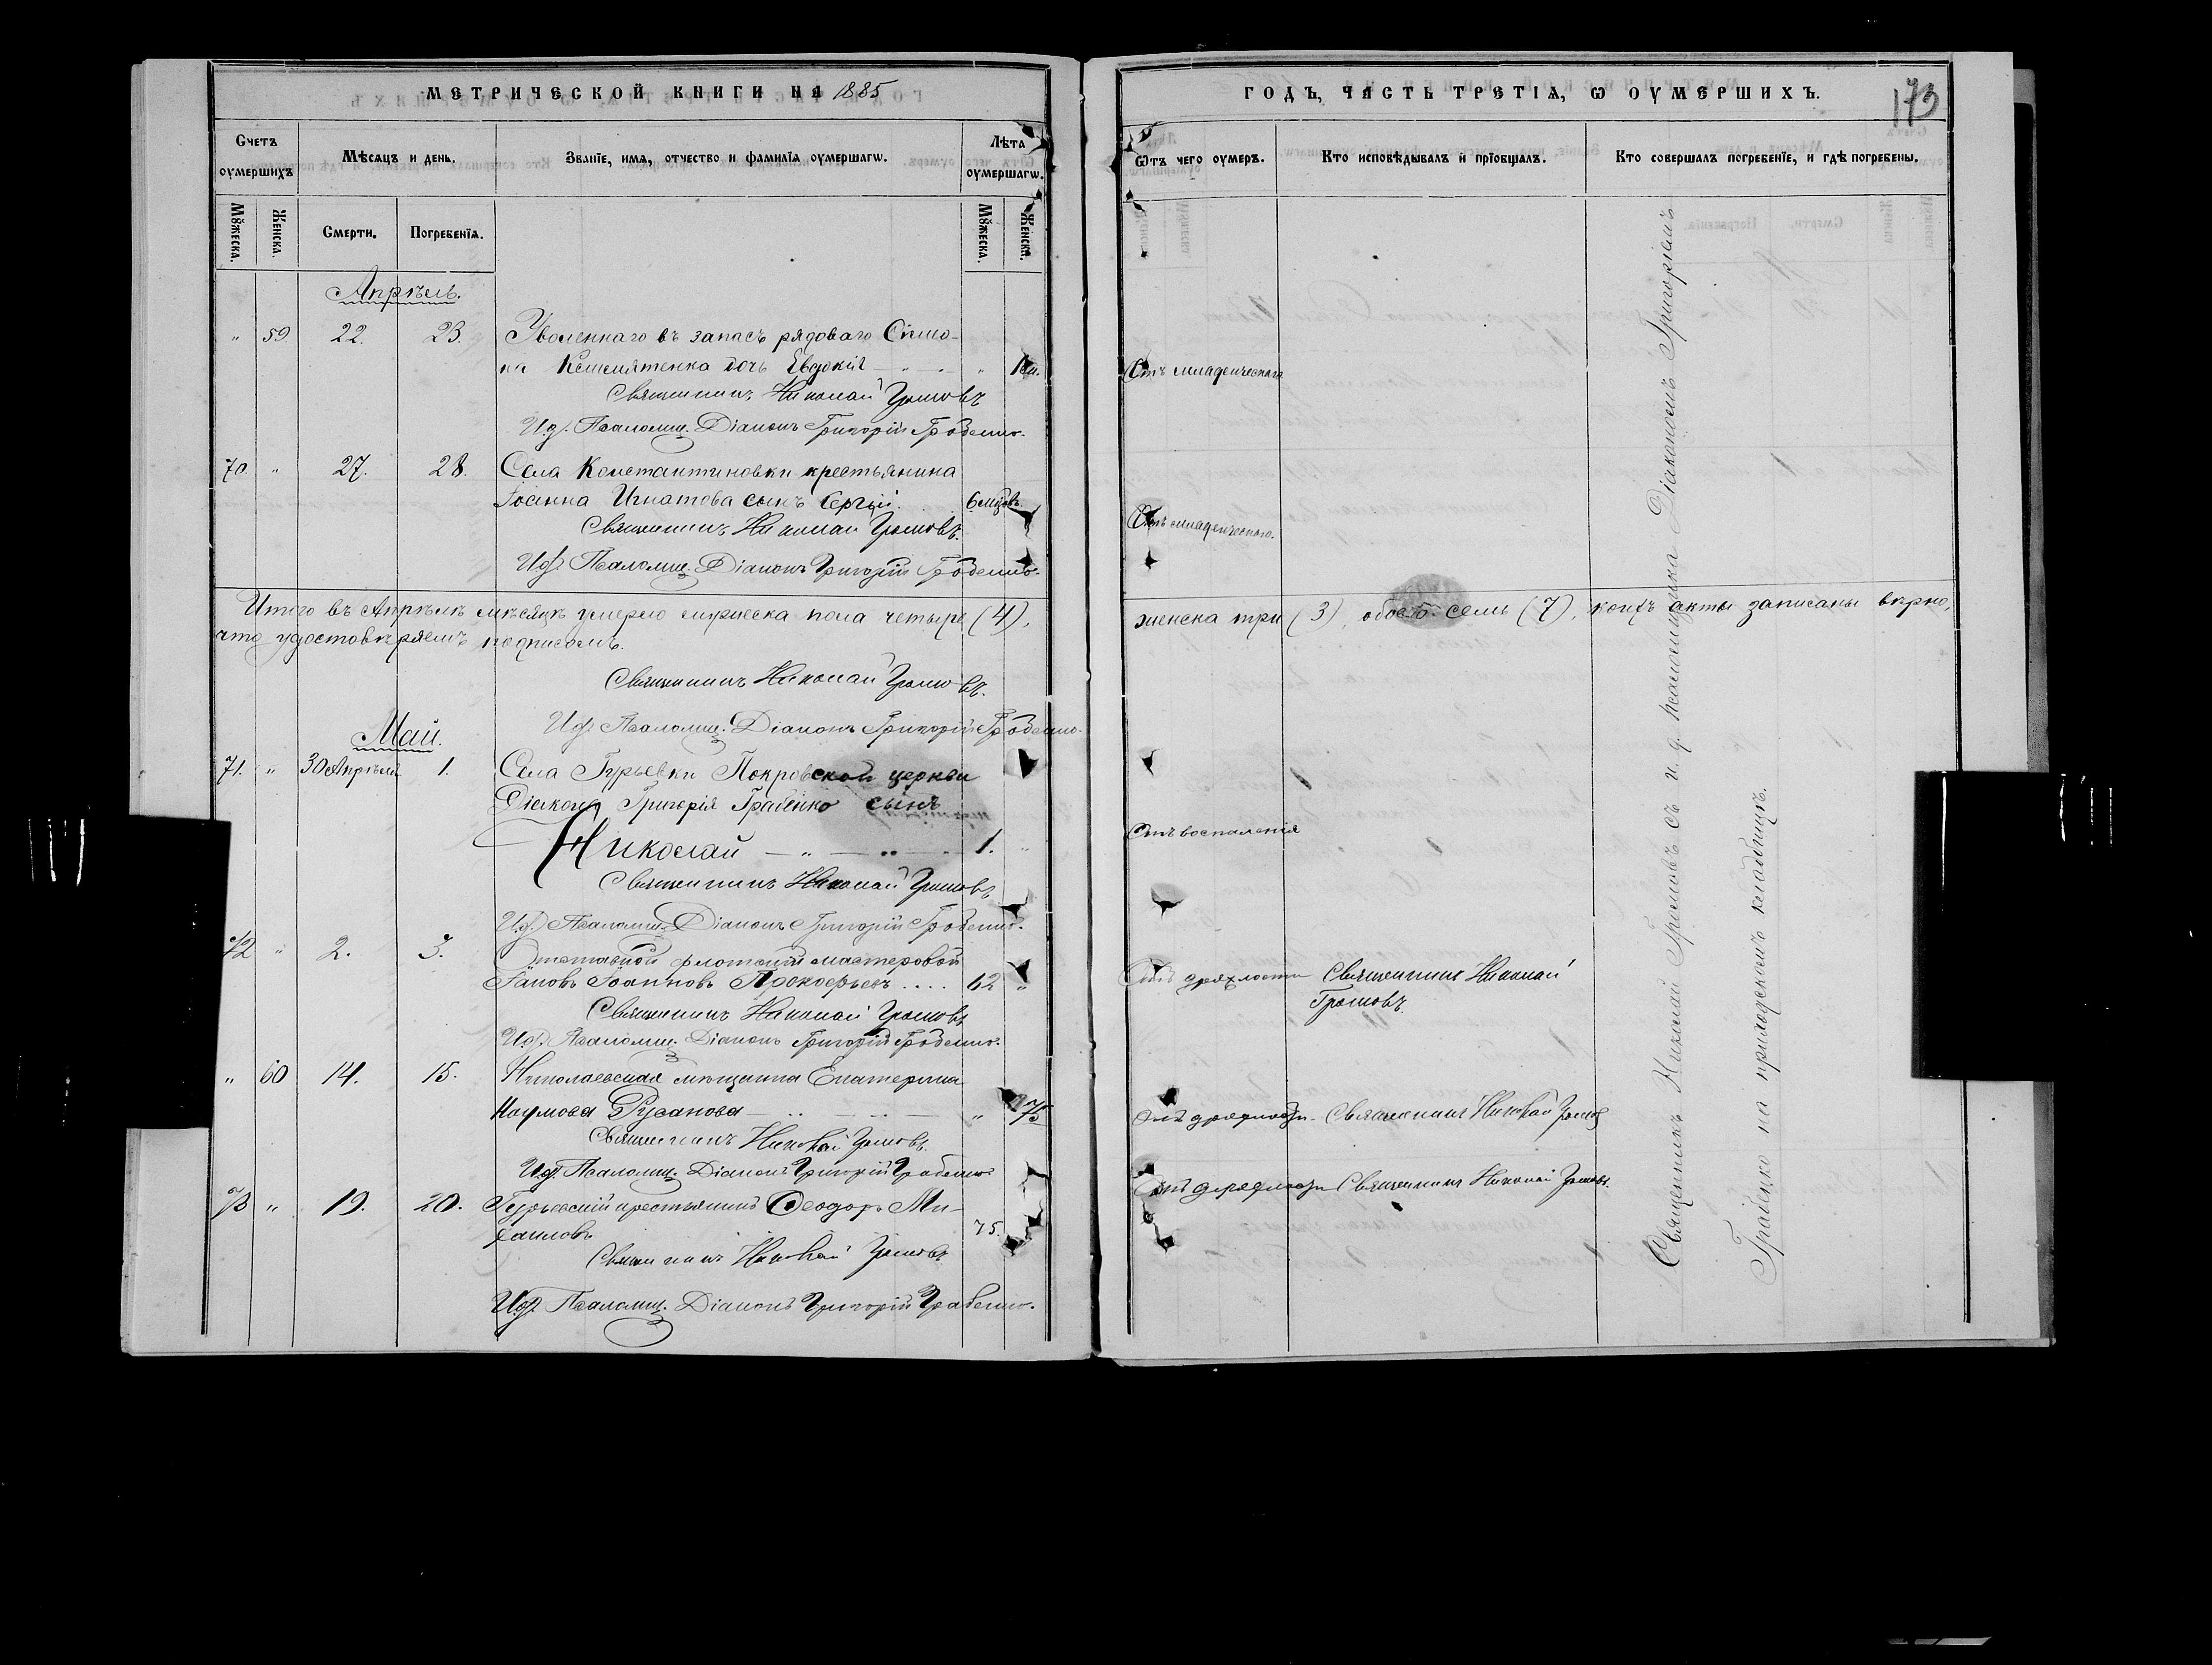 МЕТРИЧЕСКОЙ КНИГИ НА 1885
Счетъ оумершихъ
Мѣсяцъ и день.
Званїе, имѧ, отчество и фамилїѧ оумершагѡ.
Лѣта оумершагѡ.
Мꙋжеска.
Женска.
Смерти.
Погребенїѧ.
Мꙋжеска.
Женска.
Апрѣль.
" 59 22. 23. Уволеннаго въ запасъ рядоваго Симо-
на дочь Евдокія "
Священникъ Николай Громовъ
И. д. Псаломщ. Діаконъ Григорій Грабенко.
70 " 27. 28. Села Константиновки крестьянина
Іоанна Игнатова сынъ Сергій. 6 мѣс.
Священникъ Николай Громовъ.
И. д. Псаломщ. Діаконъ Григорій Грабенко.
Итого въ Апрѣлѣ мѣсяцѣ умерло мужеска пола четыре (4),
что удостовѣряемъ подписомъ.
Священникъ Николай Громовъ.
И. д. Псаломщ. Діаконъ Григорій Грабенко.
Май.
71. " 30 Апрѣля 1. Села Гурьевки Покровской церкви
Діякона Григорія Грабенко сынъ
Николай — " — " — 1. "
Священникъ Николай Громовъ
И. д. Псаломщ. Діаконъ Григорій Грабенко.
72 " 2. 3. Отставной флотский мастеровой
Іаковъ Іоанновъ Прокофьевъ .... 62 "
Священникъ Николай Громовъ
И. д. Псаломщ. Діаконъ Григорій Грабенко.
" 60 14. 15. Николаевская мѣщанка Екатерина
Наумова Русанова — " 75
Священникъ Николай Громовъ.
И. д. Псаломщ. Діаконъ Григорій Грабенко
73 " 19. 20. Гурьевскій крестьянинъ Ѳеодоръ Ми-
хаиловъ 75.
Священникъ Николай Громовъ
И. д. Псаломщ. Діаконъ Григорій Грабенко.
ГОДЪ, ЧАСТЬ ТРЕТІѦ, Ѡ ОУМЕРШИХЪ.
173
Ѿтъ чего оумеръ.
Кто исповѣдывалъ и прїобщалъ.
Кто совершалъ погребенїе, и гдѣ погребены.
Отъ младенческаго
Отъ младенческаго.
женска три (3), обоего семь (7), коихъ акты записаны вѣрно,
Отъ воспаленія
Отъ дряхлости Священникъ Николай
Громовъ.
Отъ дряхлости. Священникъ Николай Громовъ
Отъ дряхлости Священникъ Николай Громовъ.
Священникъ Николай Громовъ съ и. д. псаломщика Діакономъ Григоріемъ
Грабенко на приходскомъ кладбищѣ.